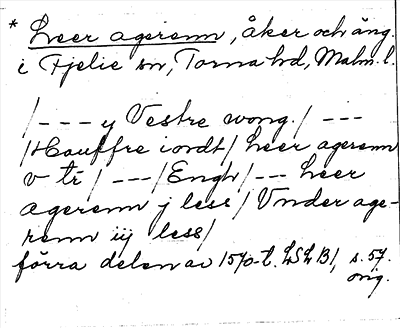 * Leer agerenn, åker och äng.
i Fjelie sn, Torna hd, Malm. l.
/--- y Vestre wong. / ---
/Houffre iordt/ Leer agerenn
v tr / --- / Engh / --- Leer
agerenn j less / Vnder age-
renn iij less /
förra delen av 1570-t. LSLB1, s. 57.
orig.